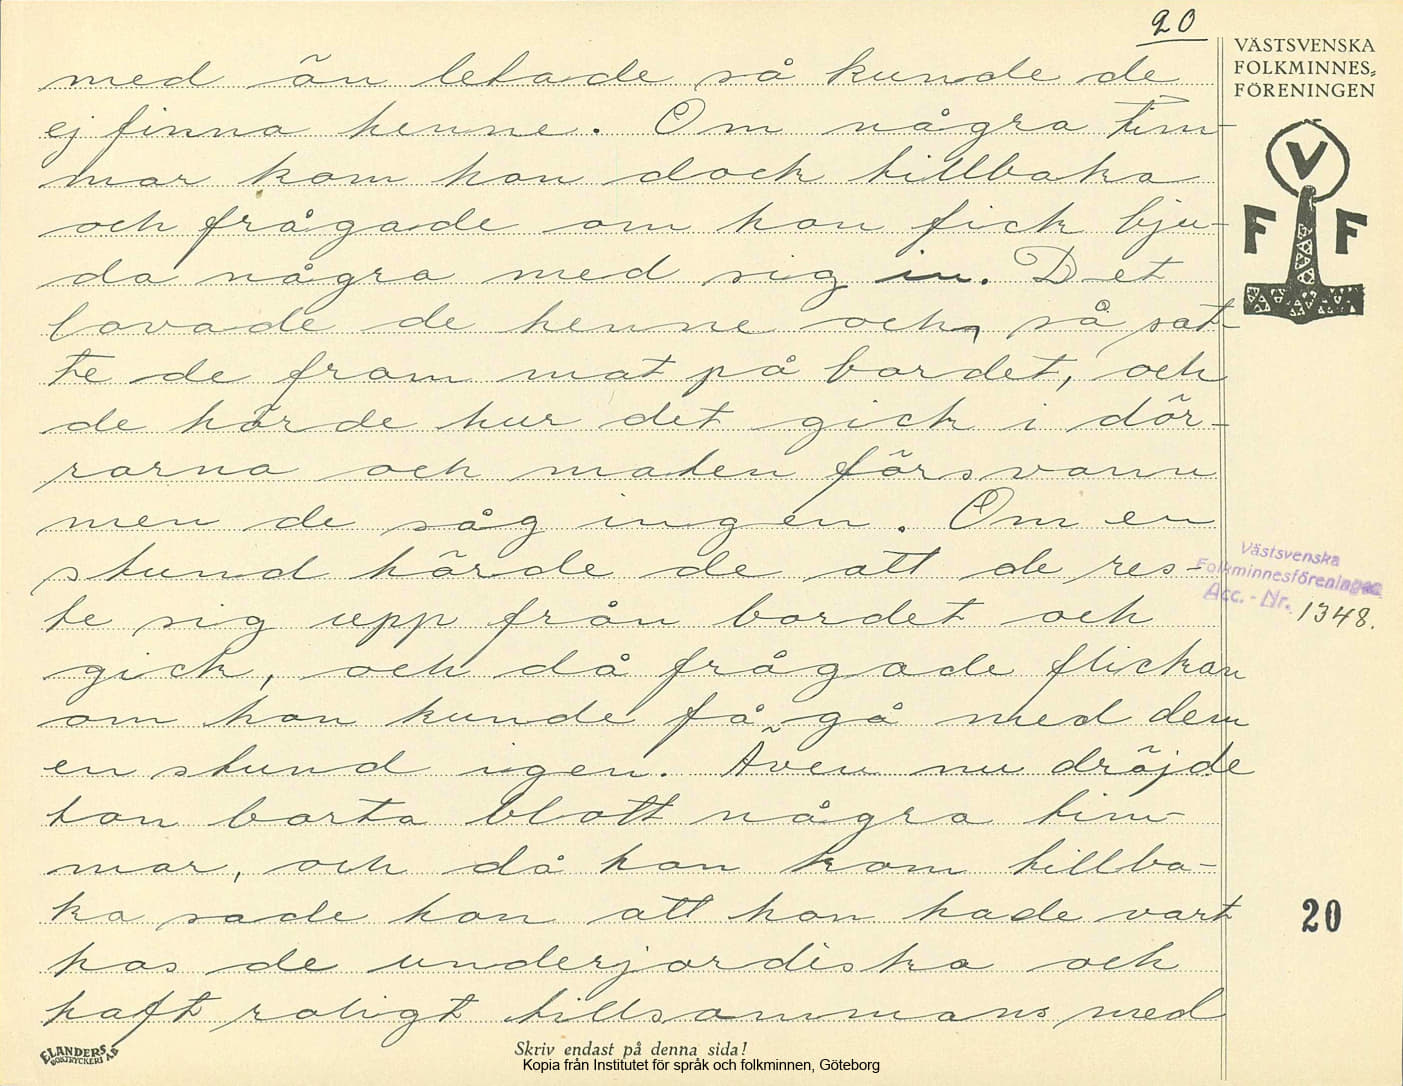 20
VÄSTSVENSKA
FOLKMINNES-
FÖRENINGEN
V
F F
med än letade så kunde de
ej finna henne. Om några tim-
mar kom hon dock tillbaka
och frågade om hon fick bju-
da några med sig in. Det
lovade de henne och, så sat-
te de fram mat på bordet, och
de hörde hur det gick i dör-
rarna och maten försvann
men de såg ingen. Om en
stund hörde de att de res-
te sig upp från bordet och
gick, och då frågade flickan
om hon kunde få gå med dem
en stund igen. Även nu dröjde
hon borta blott några tim-
mar, och då hon kom tillba-
ka sade hon att hon hade vart
hos de underjordiska och
haft roligt tillsammans med
Västsvenska
Folkminnesföreningen
Acc. - Nr. 1348.
20
ELANDERS
BOKTRYCKERI AB
Skriv endast på denna sida!
Kopia från Institutet för språk och folkminnen, Göteborg